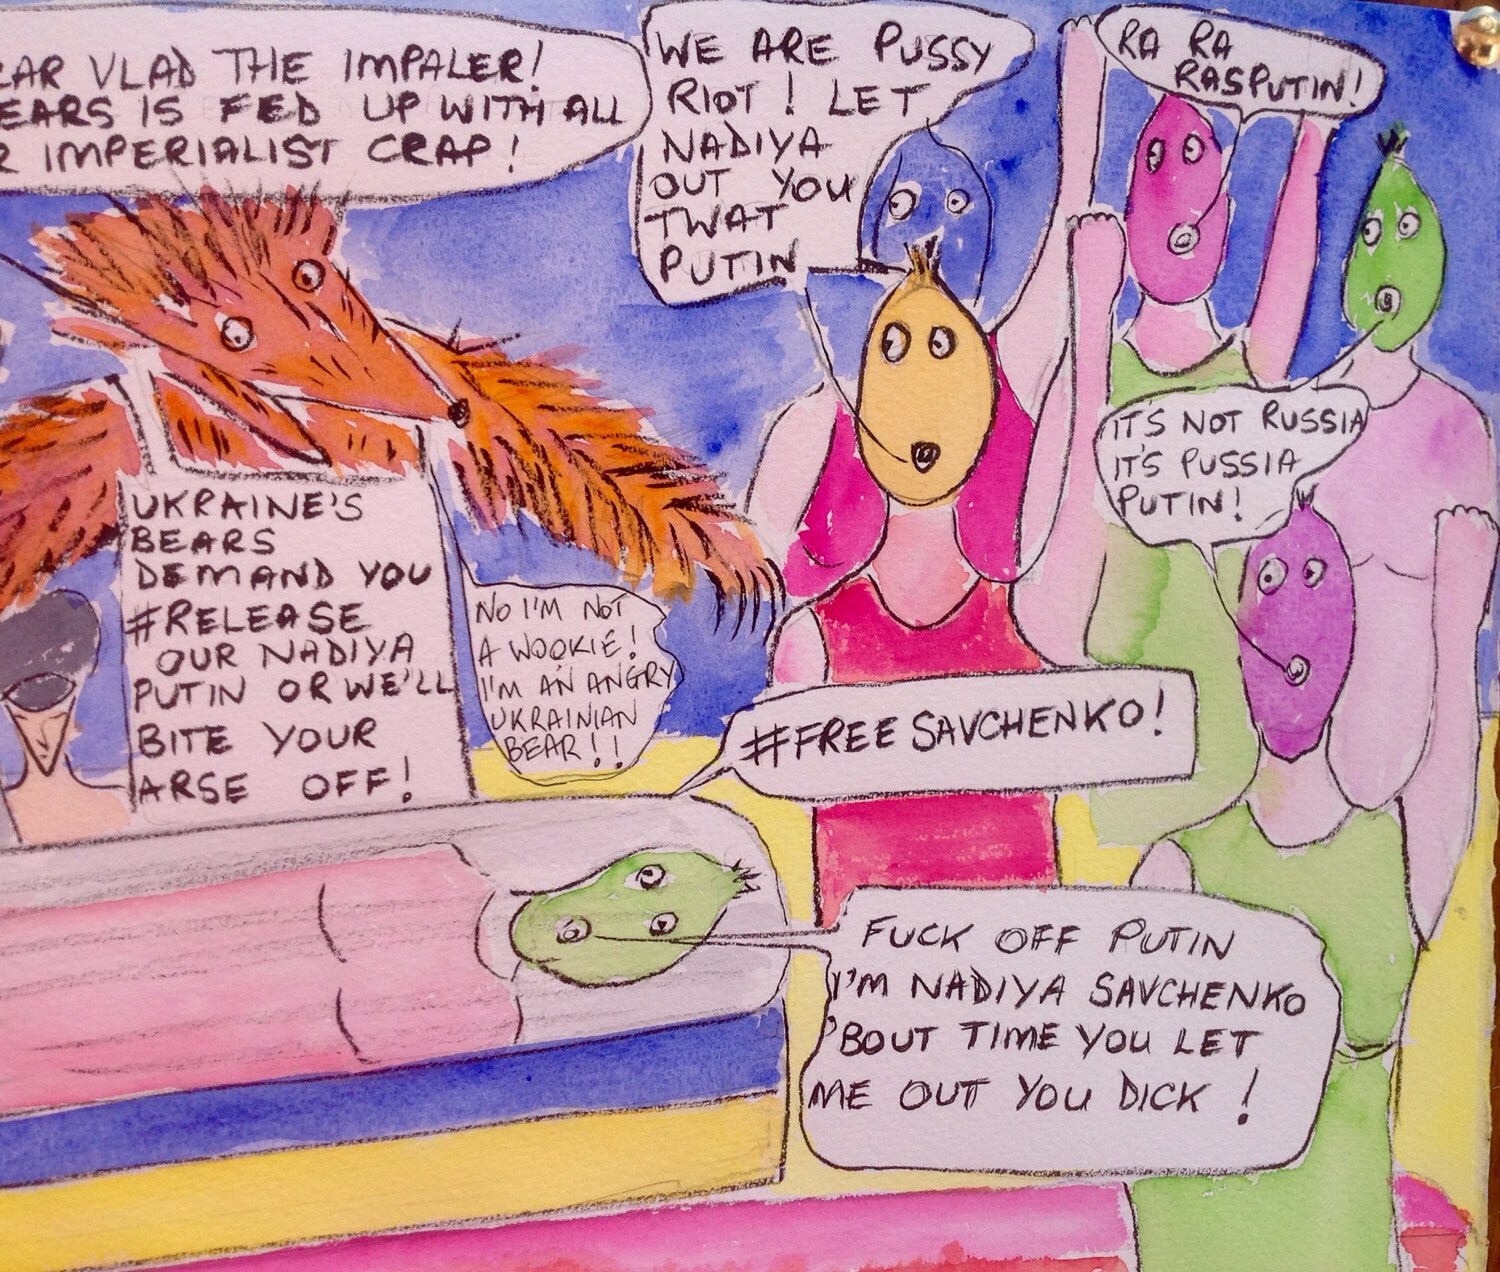 VLAD THE IMPALER!
EARS IS FED UP WITH ALL
R IMPERIALIST CRAP!
WE ARE PUSSY
RIOT! LET
NADIYA
OUT YOU
TWAT
PUTIN
RA RA
RASPUTIN!
IT'S NOT RUSSIA
IT'S PUSSIA
PUTIN!
UKRAINE'S
BEARS
DEMAND YOU
#RELEASE
OUR NADIYA
PUTIN OR WE'LL
BITE YOUR
ARSE OFF!
NO I'M NOT
A WOOKIE!
I'M AN ANGRY
UKRAINIAN
BEAR!!
#FREE SAVCHENKO!
FUCK OFF PUTIN
I'M NADIYA SAVCHENKO
'BOUT TIME YOU LET
ME OUT YOU DICK!